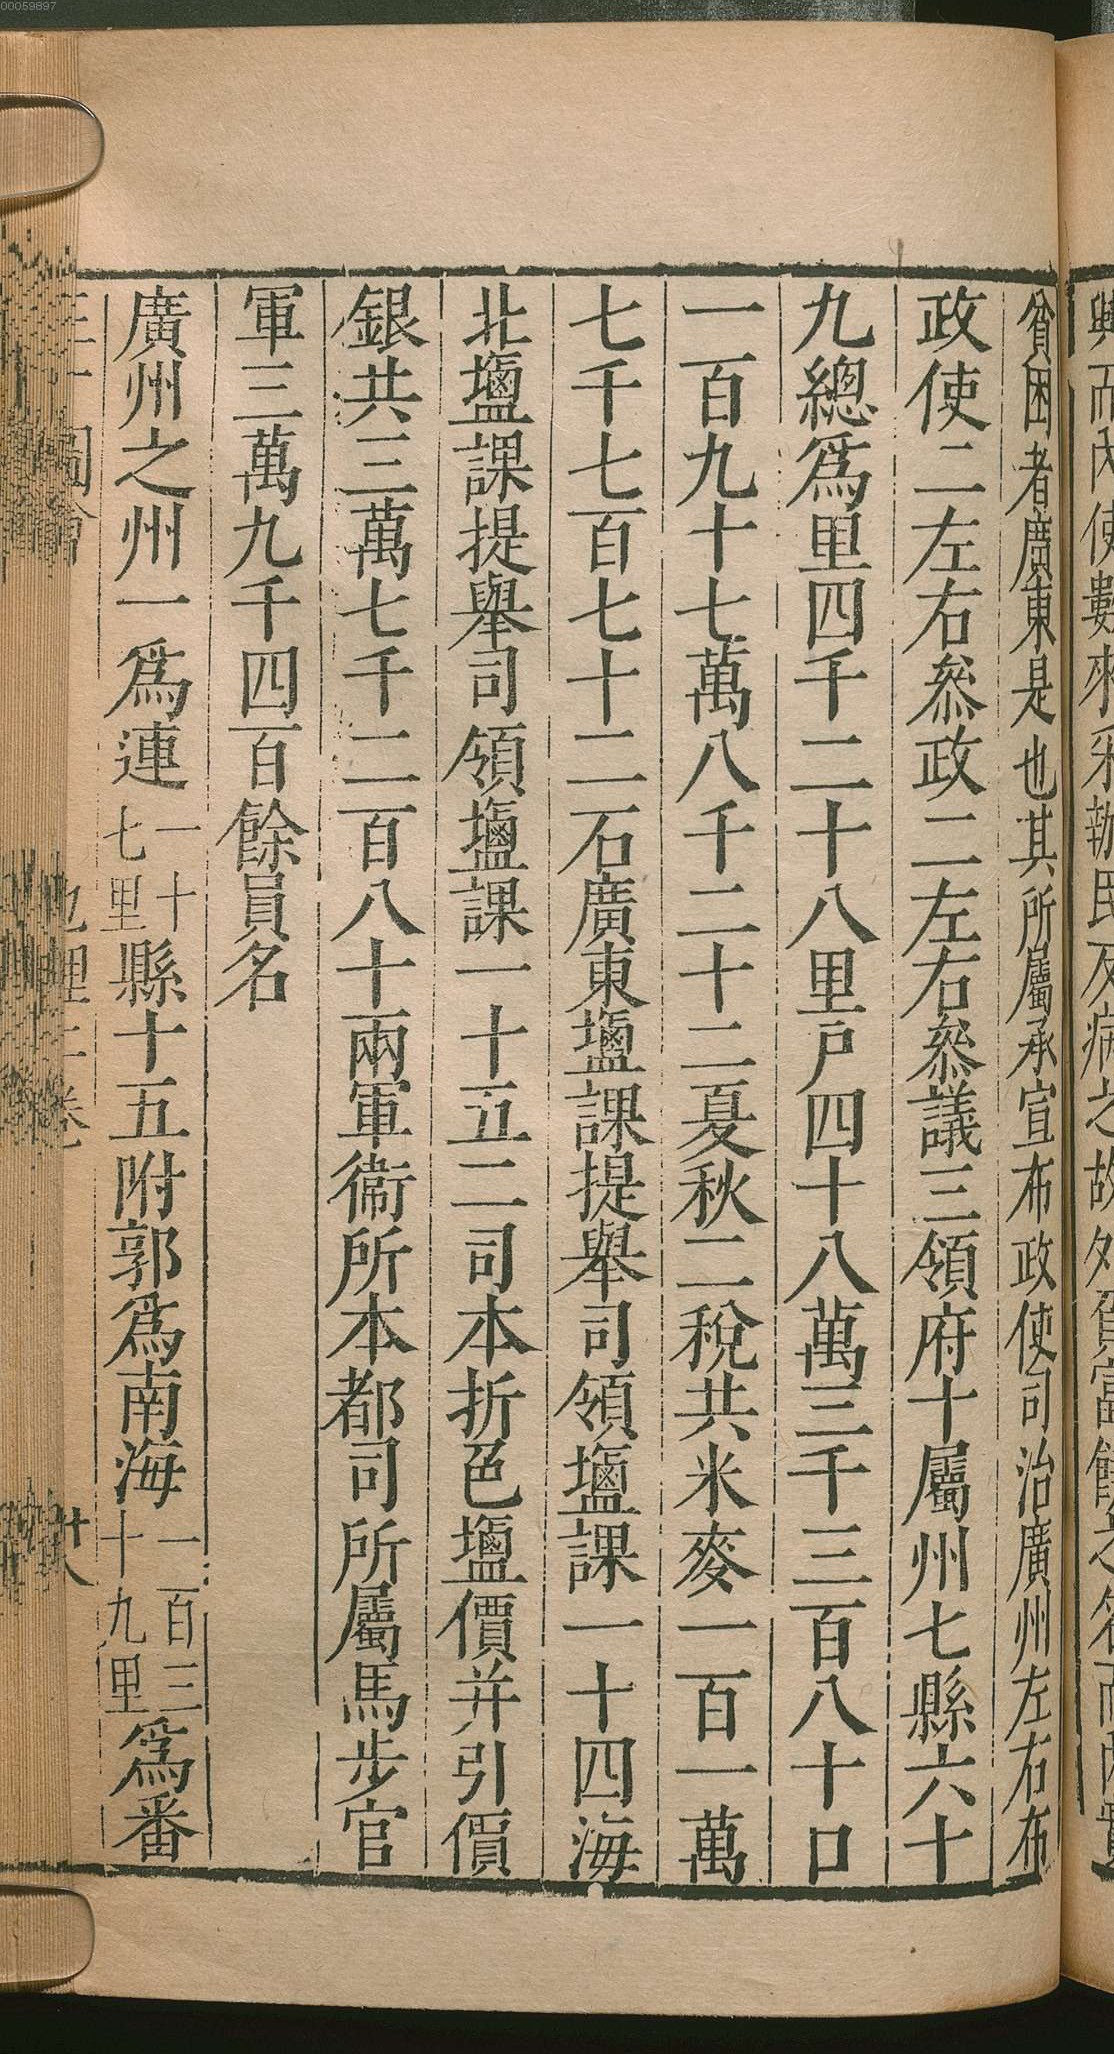 00059897
貧困者廣東是也其所屬承宣布政使司治廣州左右布
政使二左右叅政二左右叅議三領府十屬州七縣六十
九總爲里四千二十八里戶四十八萬三千三百八十口
一百九十七萬八千二十二夏秋二稅共米麥一百一萬
七千七百七十二石廣東鹽課提舉司領鹽課一十四海
北鹽課提舉司領鹽課一十五二司本折色鹽價并引價
銀共三萬七千二百八十兩軍衛所本都司所屬馬步官
軍三萬九千四百餘員名
廣州之州一爲連一十七里縣十五附郭爲南海一百三十九里爲番
地理二卷
廿八